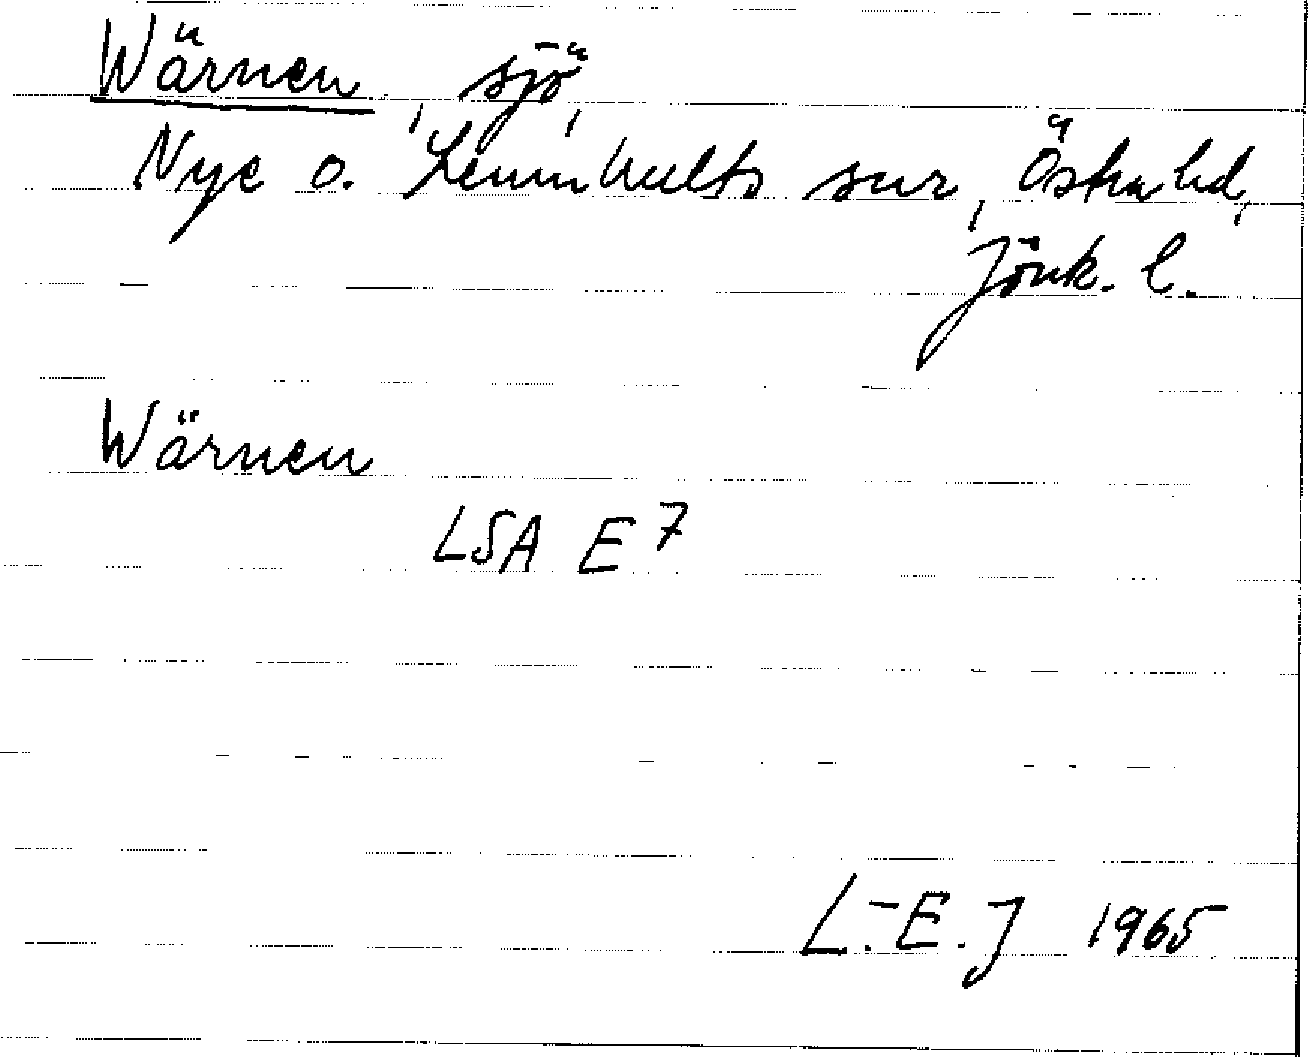 Wärnen, sjö,
Nye o. Lemnhults snr, Östra hd,
Jönk. l.
Wärnen
LSA E7
L.-E. J 1965